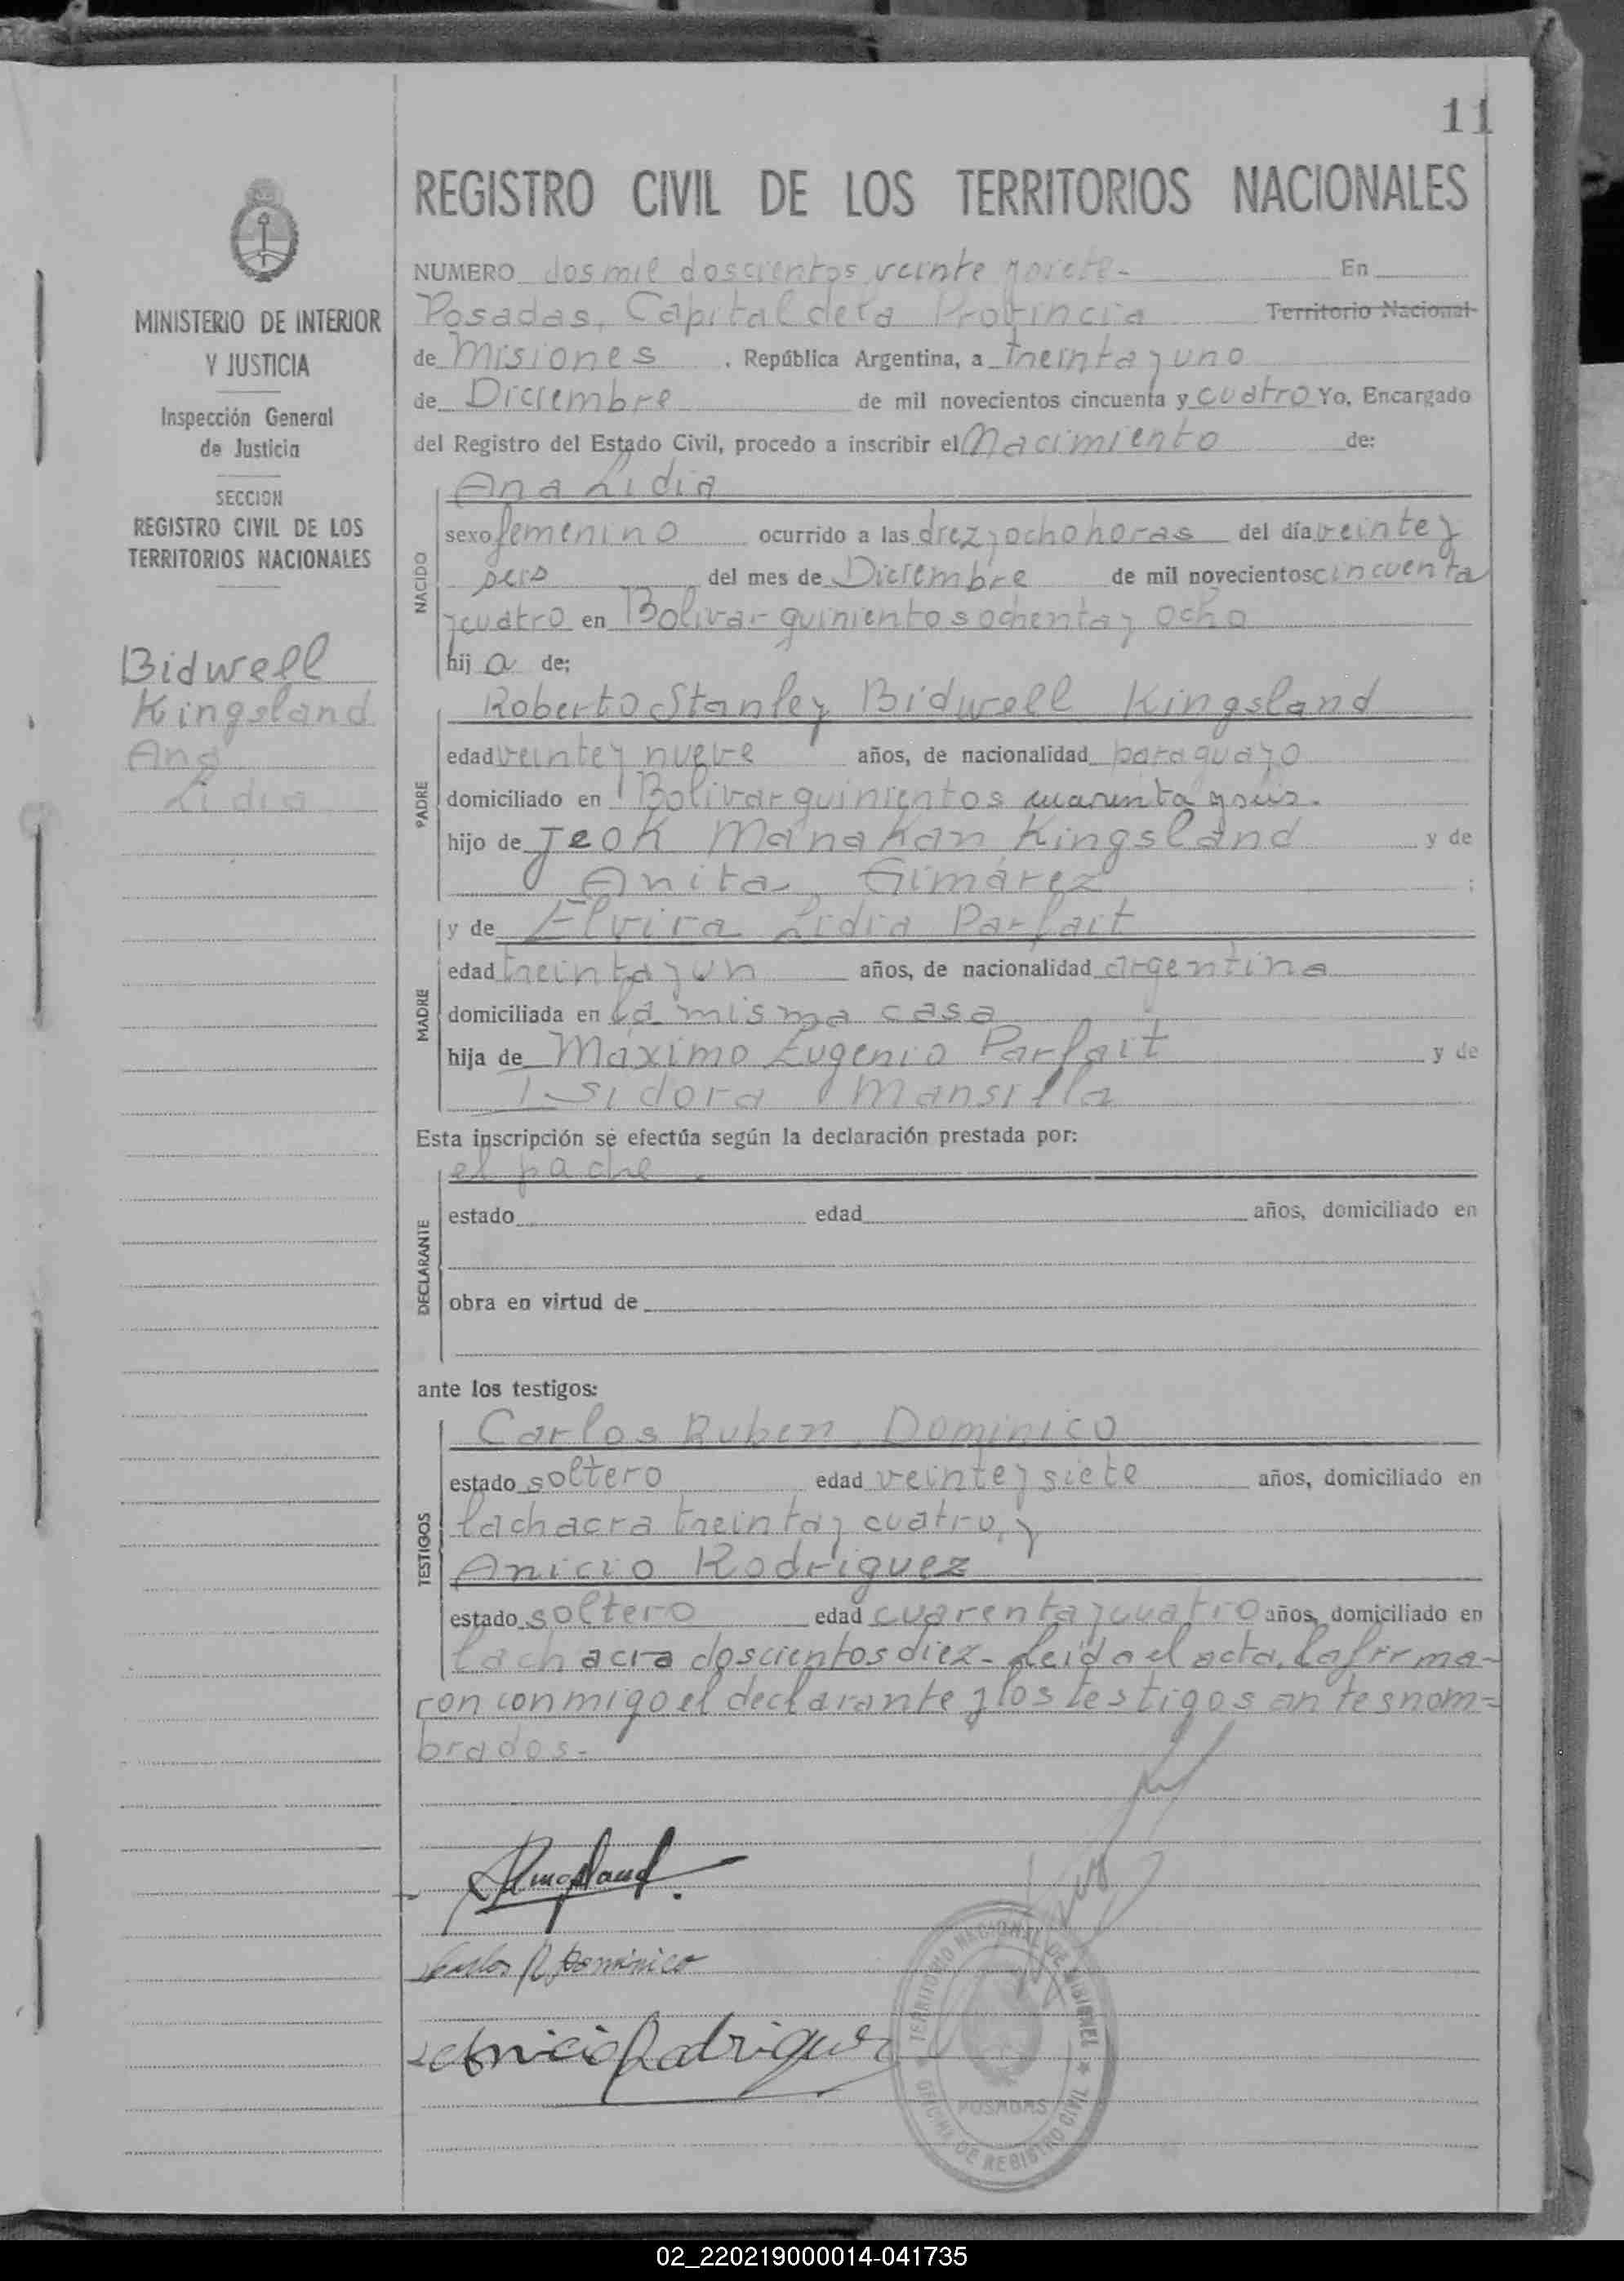 11
REGISTRO CIVIL DE LOS TERRITORIOS NACIONALES
MINISTERIO DE INTERIOR
Y JUSTICIA
Inspección General
de Justicia
SECCION
REGISTRO CIVIL DE LOS
TERRITORIOS NACIONALES
Bidwell
Kingsland
Ana
Lidia
NUMERO dos mil doscientos veinte y siete- En
Posadas, Capital de la Provincia Territorio Nacional
de Misiones, República Argentina, a treinta y uno
de Diciembre de mil novecientos cincuenta y cuatro Yo, Encargado
del Registro del Estado Civil, procedo a inscribir el Nacimiento de:
Ana Lidia
NACIDO
sexo femenino ocurrido a las diez y ocho horas del día veinte y
seis del mes de Diciembre de mil novecientos cincuenta
y cuatro en Bolivar quinientos ochenta y ocho
hij a de;
Roberto Stanley Bidwell Kingsland
PADRE
edad veinte y nueve años, de nacionalidad paraguayo
domiciliado en Bolivar quinientos cuarenta y seis.
hijo de Jeok Manakan Kingsland y de
Anita Gimárez;
MADRE
y de Elvira Lidia Parfait
edad treinta y un años, de nacionalidad argentina
domiciliada en la misma casa
hija de Máximo Eugenio Parfait y de
Isidora Mansilla
Esta inscripción se efectúa según la declaración prestada por:
el padre.
DECLARANTE
estado edad años, domiciliado en
obra en virtud de
ante los testigos:
Carlos Ruben Dominico
TESTIGOS
estado soltero edad veinte y siete años, domiciliado en
la chacra treinta y cuatro, y
Anicio Rodriguez
estado soltero edad cuarenta y cuatro años, domiciliado en
la chacra doscientos diez- Leída el acta, la firma-
ron conmigo el declarante y los testigos antes nom=
brados.-
Kingsland.
Carlos R. Dominico
Anicio Rodriguez
TERRITORIO NACIONAL DE MISIONES
POSADAS
OFICINA DE REGISTRO CIVIL
02_220219000014-041735